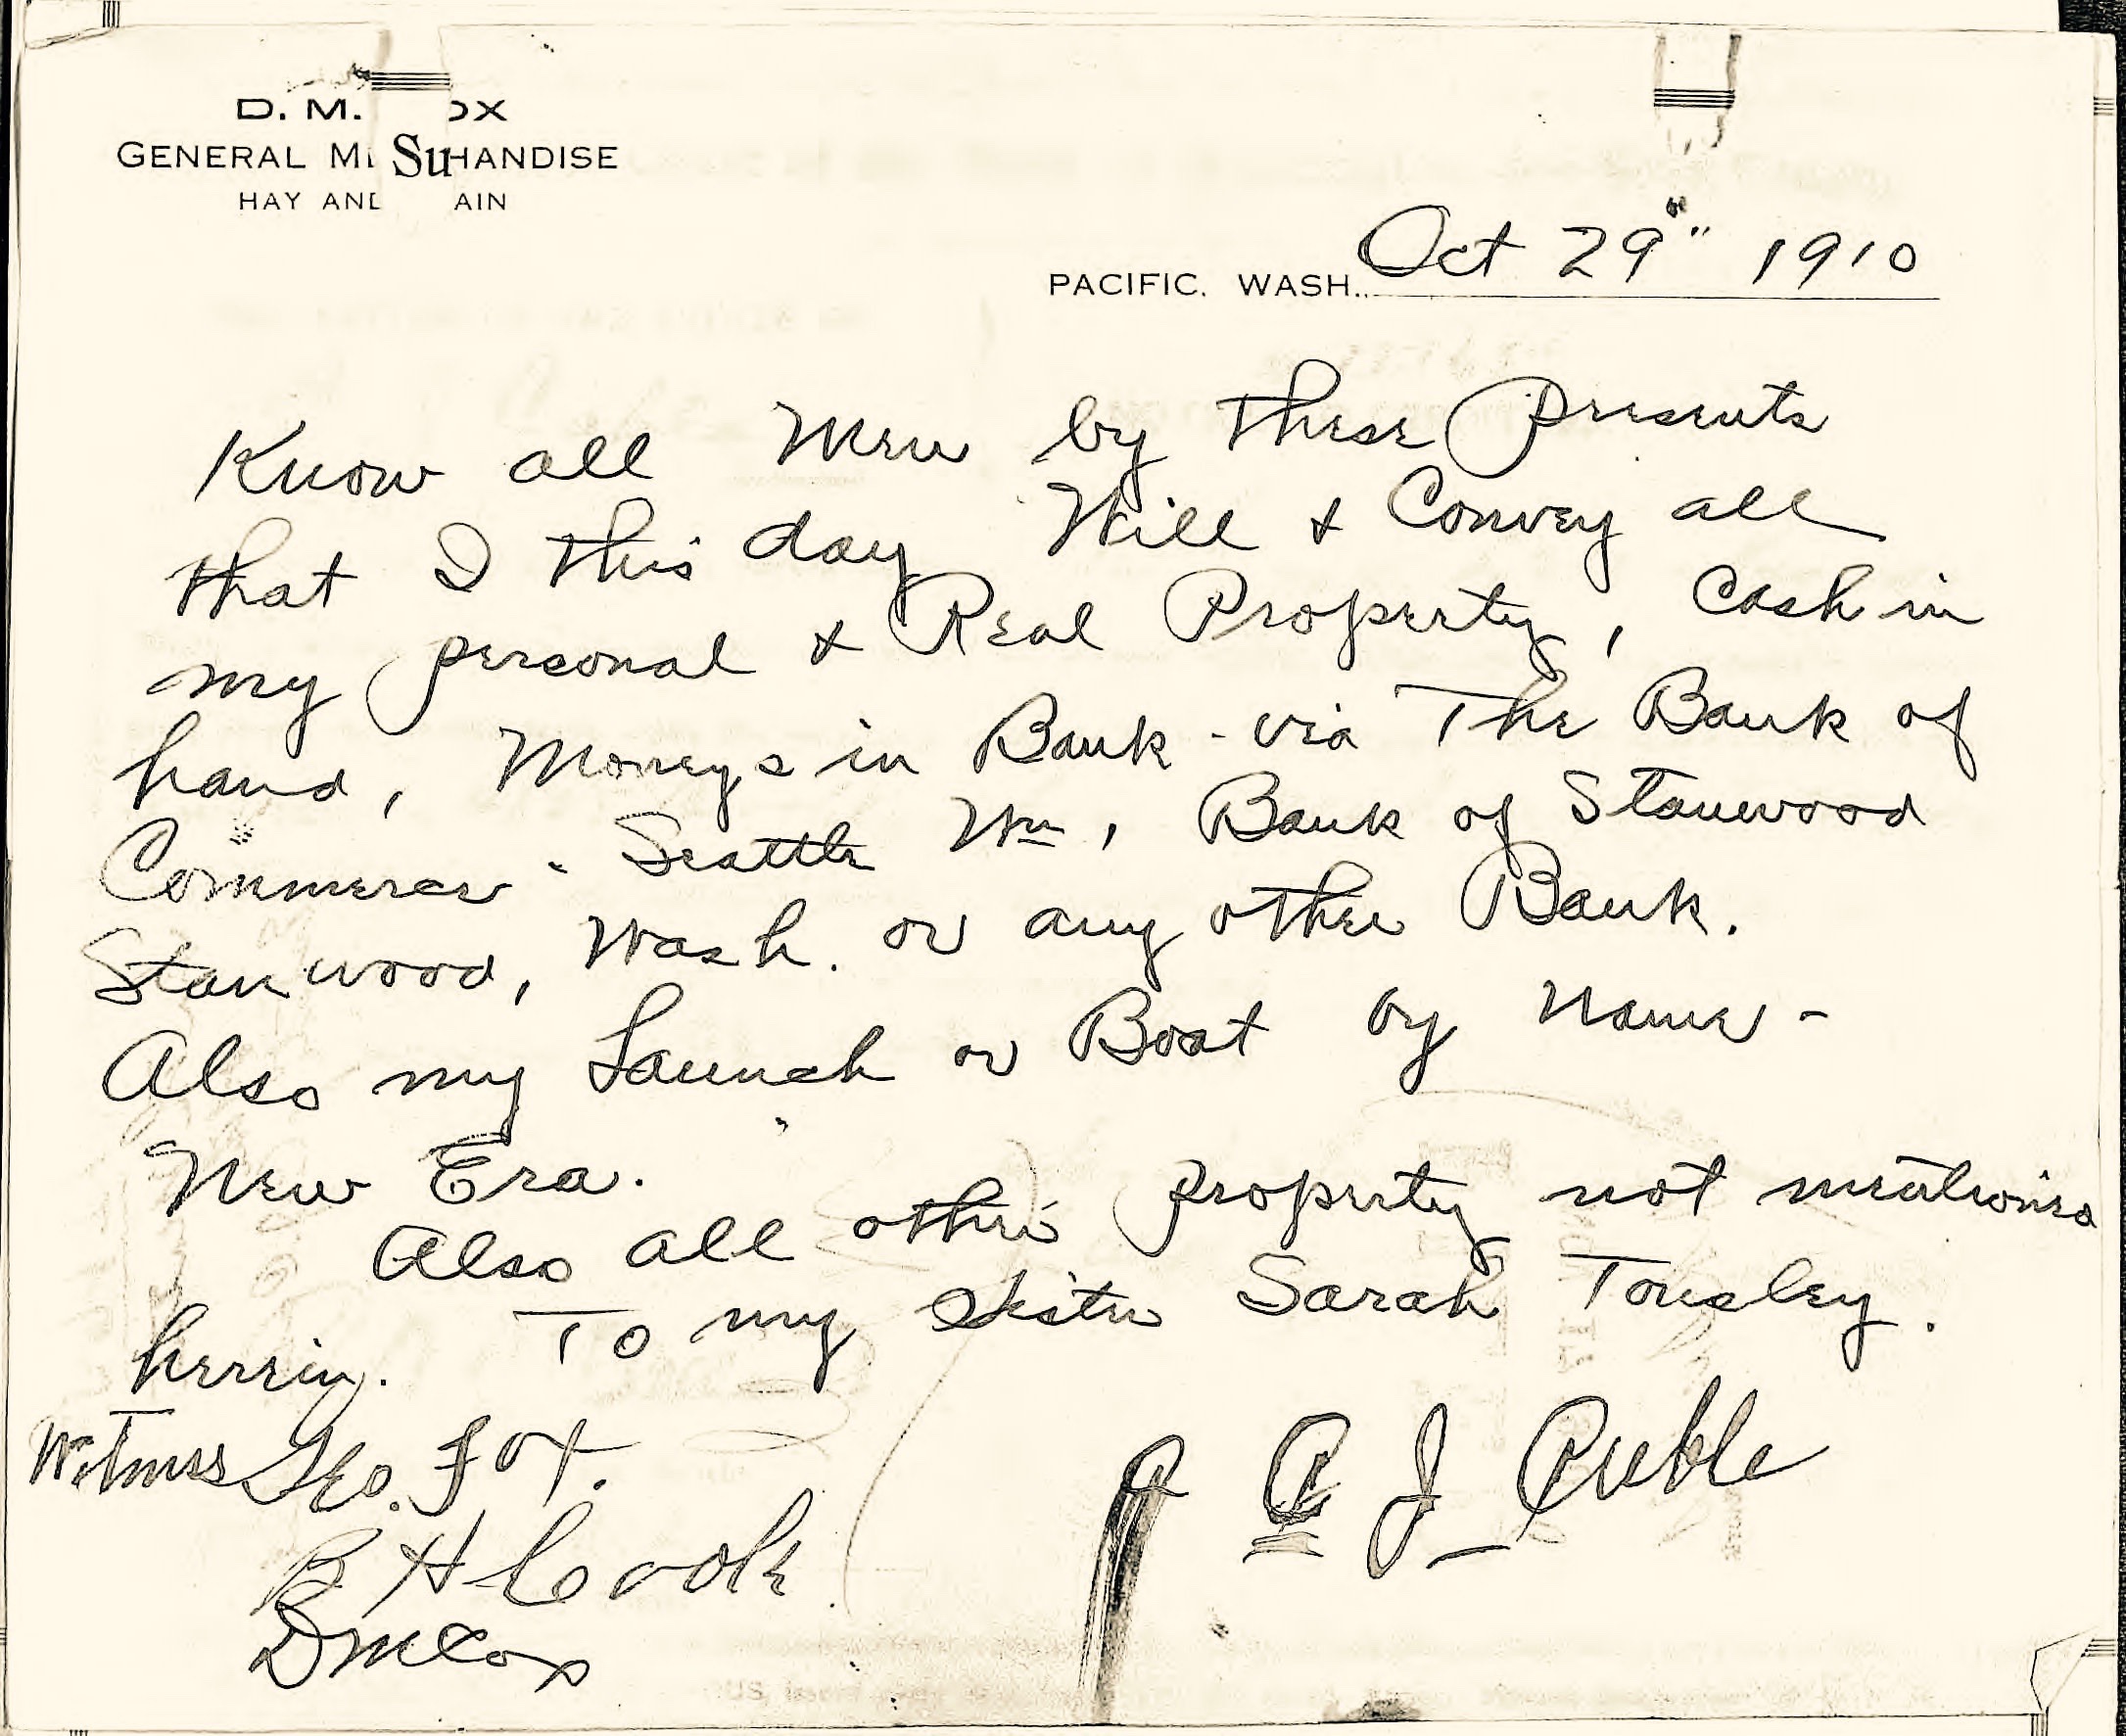 D. M. OX
GENERAL M Su HANDISE
HAY AND AIN
PACIFIC, WASH. Oct 29" 1910
Know all Men by these presents
that I this day Will & Convey all
my personal & Real Property, Cash in
hand, Moneys in Bank - via The Bank of
Commerce - Seattle Wn, Bank of Stanwood
Stanwood, Wash. or any other Bank.
Also my Launch or Boat by name -
New Era.
Also all other property not mentioned
herein. To my Sister Sarah Tousley.
Witness Geo. Fox.
A A J Ruble
B H Cook
D M Cox